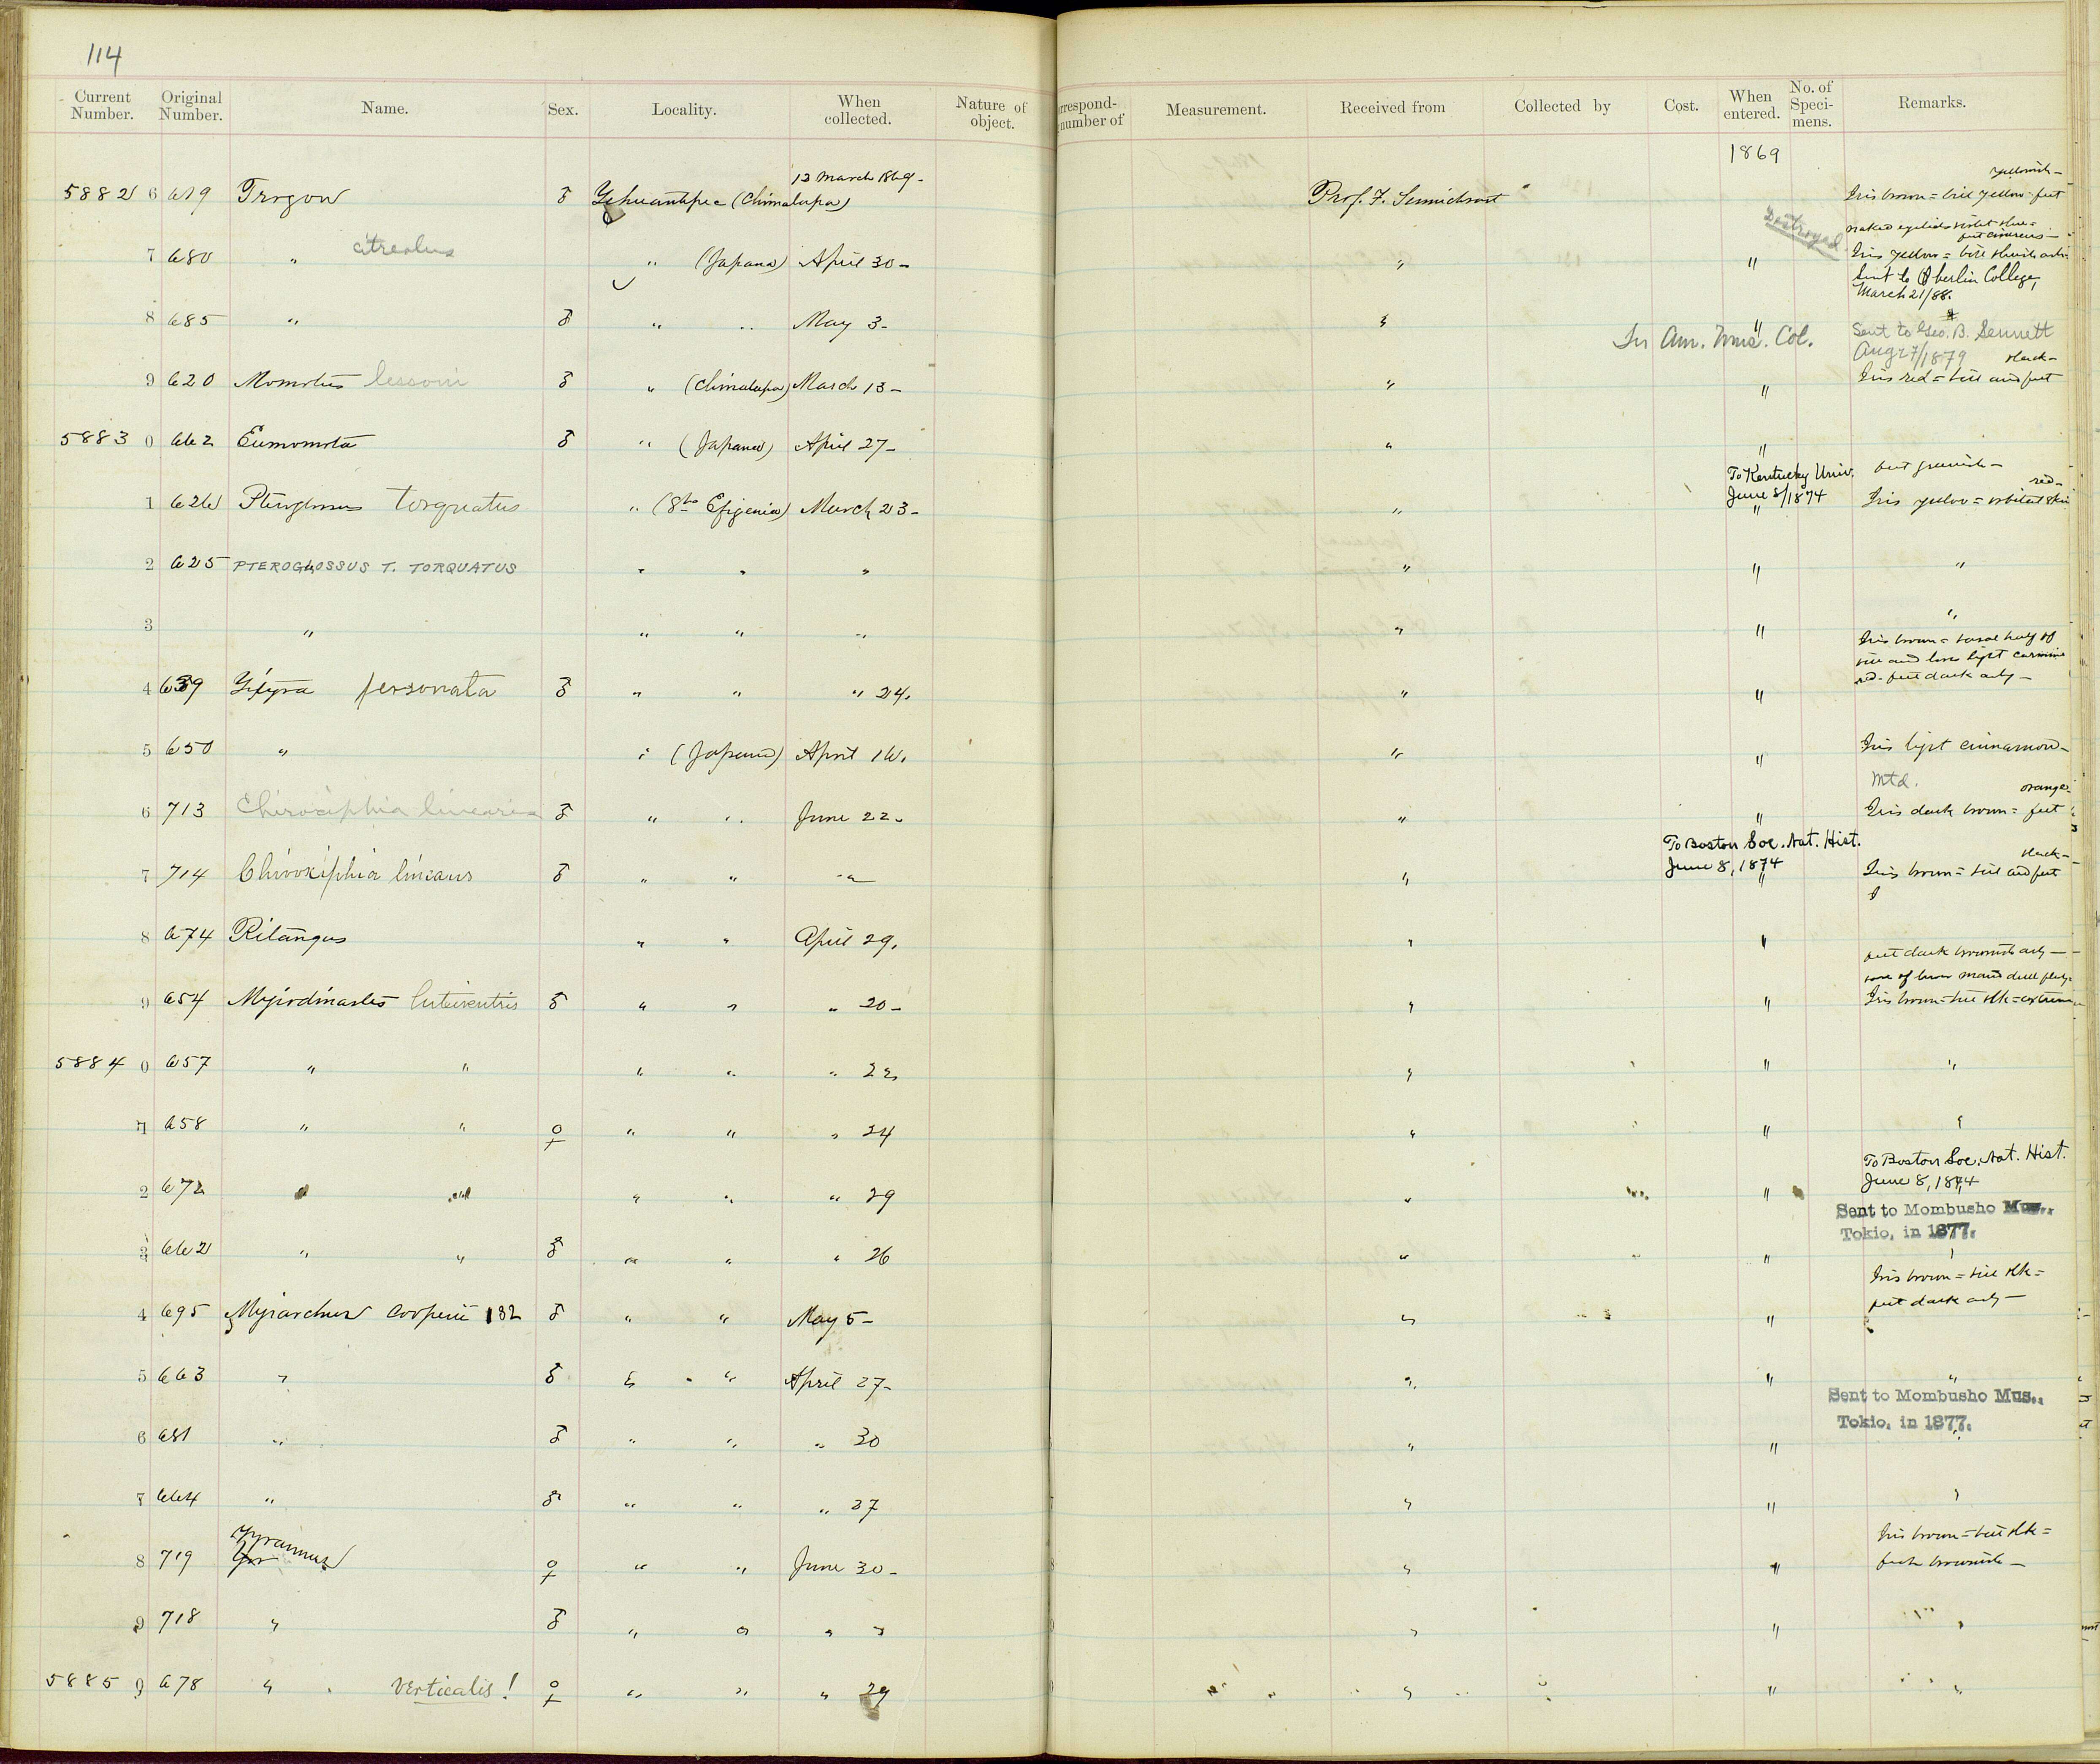 114
Current Number. Original Number. Name. Sex. Locality. When collected. Nature of object. rrespond- number of Measurement. Received from Collected by Cost. When entered. No. of Speci- mens. Remarks.
1869
13 March 1869- yellowish-
5882 6 619 Trogon ♂ Tehuantepec (Chimalapa) Prof. F. Sumichrast Iris brown = bill yellow = feet
Destroyed naked eyelids violet blue =
feet cinereus -
7 680 " citreolus " (Japana) April 30- " " Iris yellow = bill bluish
Sent to Oberlin College,
March 21/88.
8 685 " ♂ " " May 3- " " In Am. Mus. Col. Sent to Geo. B. Sennett
Aug 27/1879 black-
9 620 Momotus lessoni ♂ " (Chimalapa) March 13- " " Iris red = bill and feet
5883 0 662 Eumomota ♂ " (Japana) April 27- " "
To Kentucky Univ. feet greenish-
June 8/1874 red-
1 626 Pteroglossus torquatus " (Sta Efigenia) March 23- " " Iris yellow = orbital skin
2 625 PTEROGLOSSUS T. TORQUATUS " " " " " "
3 " " " " " " "
Iris brown = basal half of
bill and lores light carmine
4 639 Tityra personata ♂ " " " 24. " " red- feet dark ashy-
5 650 " " (Japana) April 16. " " Iris light cinnamon-
Mtd. orange-
6 713 Chiroxiphia linearis ♂ " " June 22- " " Iris dark brown = feet
To Boston Soc. Nat. Hist.
June 8, 1874 black-
7 714 Chiroxiphia linearis ♂ " " " " " Iris brown = bill and feet
8 674 Pitangus " " April 29. " "
feet dark brownish ashy-
base of lower mand dull
9 654 Myiodinastes luteiventris ♂ " " " 20- " " Iris brown = bill blk =
5884 0 657 " " " " " 22 " " "
1 658 " " ♀ " " " 24 " " "
To Boston Soc. Nat. Hist.
June 8, 1874
2 672 " " " " " 29 " "
Sent to Mombusho Mus.,
Tokio, in 1877.
3 662 " " ♂ " " " 26 " " "
Iris brown = bill blk =
feet dark ashy-
4 695 Myiarchus cooperii 132 ♂ " " May 5- " "
5 663 " ♂ " " April 27- " " "
Sent to Mombusho Mus.,
Tokio, in 1877.
6 681 " ♂ " " " 30 " " "
7 664 " ♂ " " " 27 " " "
Tyrannus Iris brown = bill blk =
8 719 ♀ " " June 30- " " feet brownish-
9 718 " ♂ " " " " " " "
5885 0 678 " verticalis! ♀ " " " 29 " " "